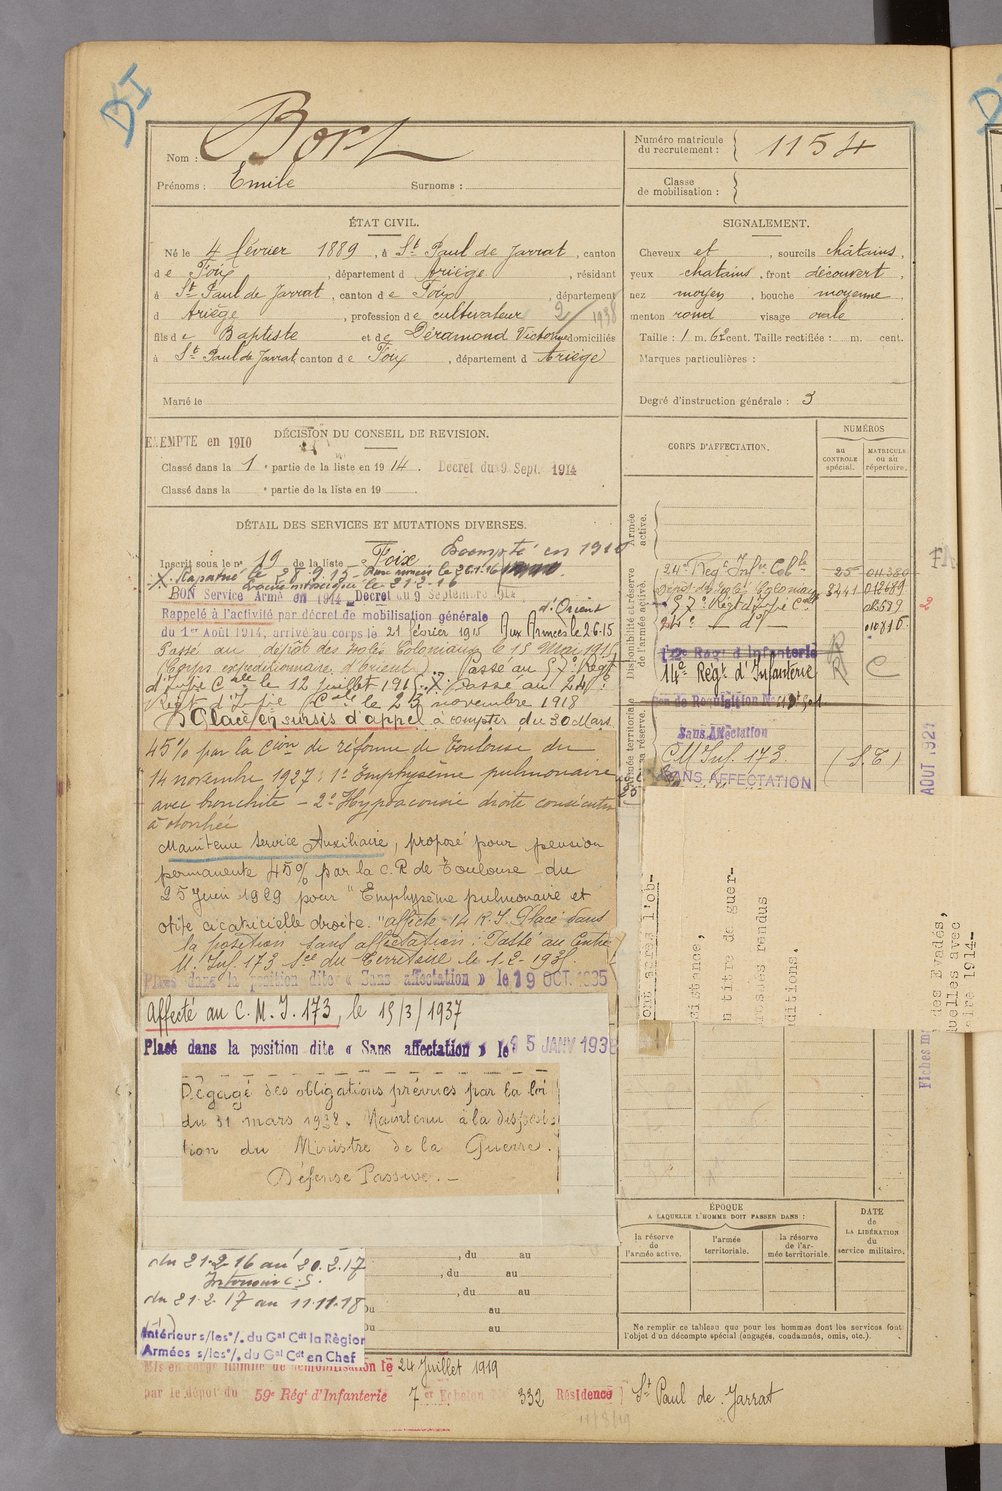 DI
Nom : Bort
Prénoms : Emile Surnoms :
Numéro matricule du recrutement : 1154
Classe de mobilisation :
ÉTAT CIVIL.
Né le 4 février 1889, à St Paul de Jarrat, canton
de Foix, département d Ariège, résidant
à St Paul de Jarrat, canton de Foix, département
d Ariège, profession de cultivateur
fils de Baptiste et de Déramond Victorine domiciliés
à St Paul de Jarrat canton de Foix, département d Ariège
Marié le
SIGNALEMENT.
Cheveux et, sourcils châtains,
yeux chatains, front découvert,
nez moyen, bouche moyenne,
menton rond visage ovale
Taille : 1 m. 62 cent. Taille rectifiée : m. cent.
Marques particulières :
Degré d'instruction générale : 3
EXEMPTE en 1910
DÉCISION DU CONSEIL DE REVISION.
Classé dans la 1e partie de la liste en 1914. Decret du 9 Sept. 1914
Classé dans la e partie de la liste en 19
CORPS D'AFFECTATION.
NUMÉROS
au CONTROLE spécial.
MATRICULE ou au répertoire.
DÉTAIL DES SERVICES ET MUTATIONS DIVERSES.
Inscrit sous le no 19 de la liste Foix Exempté en 1910
X. Rapatrié le 28.9.15 - Aux armées le 26.1.16
le 21.2.16
BON Service Armé en 1914 Decret du 9 Septembre 1914
Rappelé à l'activité par décret de mobilisation générale d'Orient
du 1er Août 1914, arrivé au corps le 21 février 1915 Aux Armées le 2.6.15
Passé au dépôt des isolés Coloniaux le 15 Mai 1915
(Corps expéditionnaire d'Orient). Passé au 57e Régt
d'Inf.ie Cale le 12 Juillet 1915. X Passé au 24e
Régt d'Inf.ie Cale le 23 novembre 1918
Placé en sursis d'appel à compter du 30 Mars
45% par la Cion de réforme de Toulouse du
14 novembre 1927 : 1o Emphysème pulmonaire
avec bronchite - 2o Hypoacousie droite consécutive
à otorrhée
Maintenu Service Auxiliaire, proposé pour pension
permanente 45% par la C.R de Toulouse du
25 Juin 1929 pour "Emphysème pulmonaire et
otite cicatricielle droite." affecté 14 R.I. Placé dans
la position sans affectation : Passé au Centre
M. Inf. 173 Sce du Territoire le 1-2-1935.
Placé dans la position dite « Sans affectation » le 19 OCT. 1935
Affecté au C.M.I. 173, le 15/3/1937
Placé dans la position dite « Sans affectation » le 5 JANV 1938
Dégagé des obligations prévues par la loi
du 31 mars 1928. Maintenu à la disposi-
tion du Ministre de la Guerre.
Défense Passive. -
du 21-2-16 au 20.2.17
Intérieur C.S.
du 21-2-17 au 11.11.18
Intérieur s/les o/. du Gal Cdt la Région
Armées s/les o/. du Gal Cdt en Chef
, du au
, du au
, du au
Du au
Du au
Mis en congé illimité de démobilisation le 24 Juillet 1919
par le dépôt du 59e Régt d'Infanterie 7er Echelon 332 Résidence St Paul de Jarrat
Armée active.
Disponibilité et réserve de l'armée active.
Armée territoriale
24e Regt Infie Colle 25
Dépôt des Isolés Coloniaux 3441
57e Régt d'Infie Cale
24e d°
14e Régt d'Infanterie
Sans Affectation
C M Inf. 173. (S.T)
SANS AFFECTATION
AOUT 1921
distance,
n titre de guer-
ditions.
des Evadés,
uelles avec
1914-
ÉPOQUE
A LAQUELLE L'HOMME DOIT PASSER DANS :
la réserve de l'armée active.
l'armée territoriale.
la réserve de l'armée territoriale.
DATE de LA LIBÉRATION du service militaire.
Ne remplir ce tableau que pour les hommes dont les services font
l'objet d'un décompte spécial (engagés, condamnés, omis, etc.).